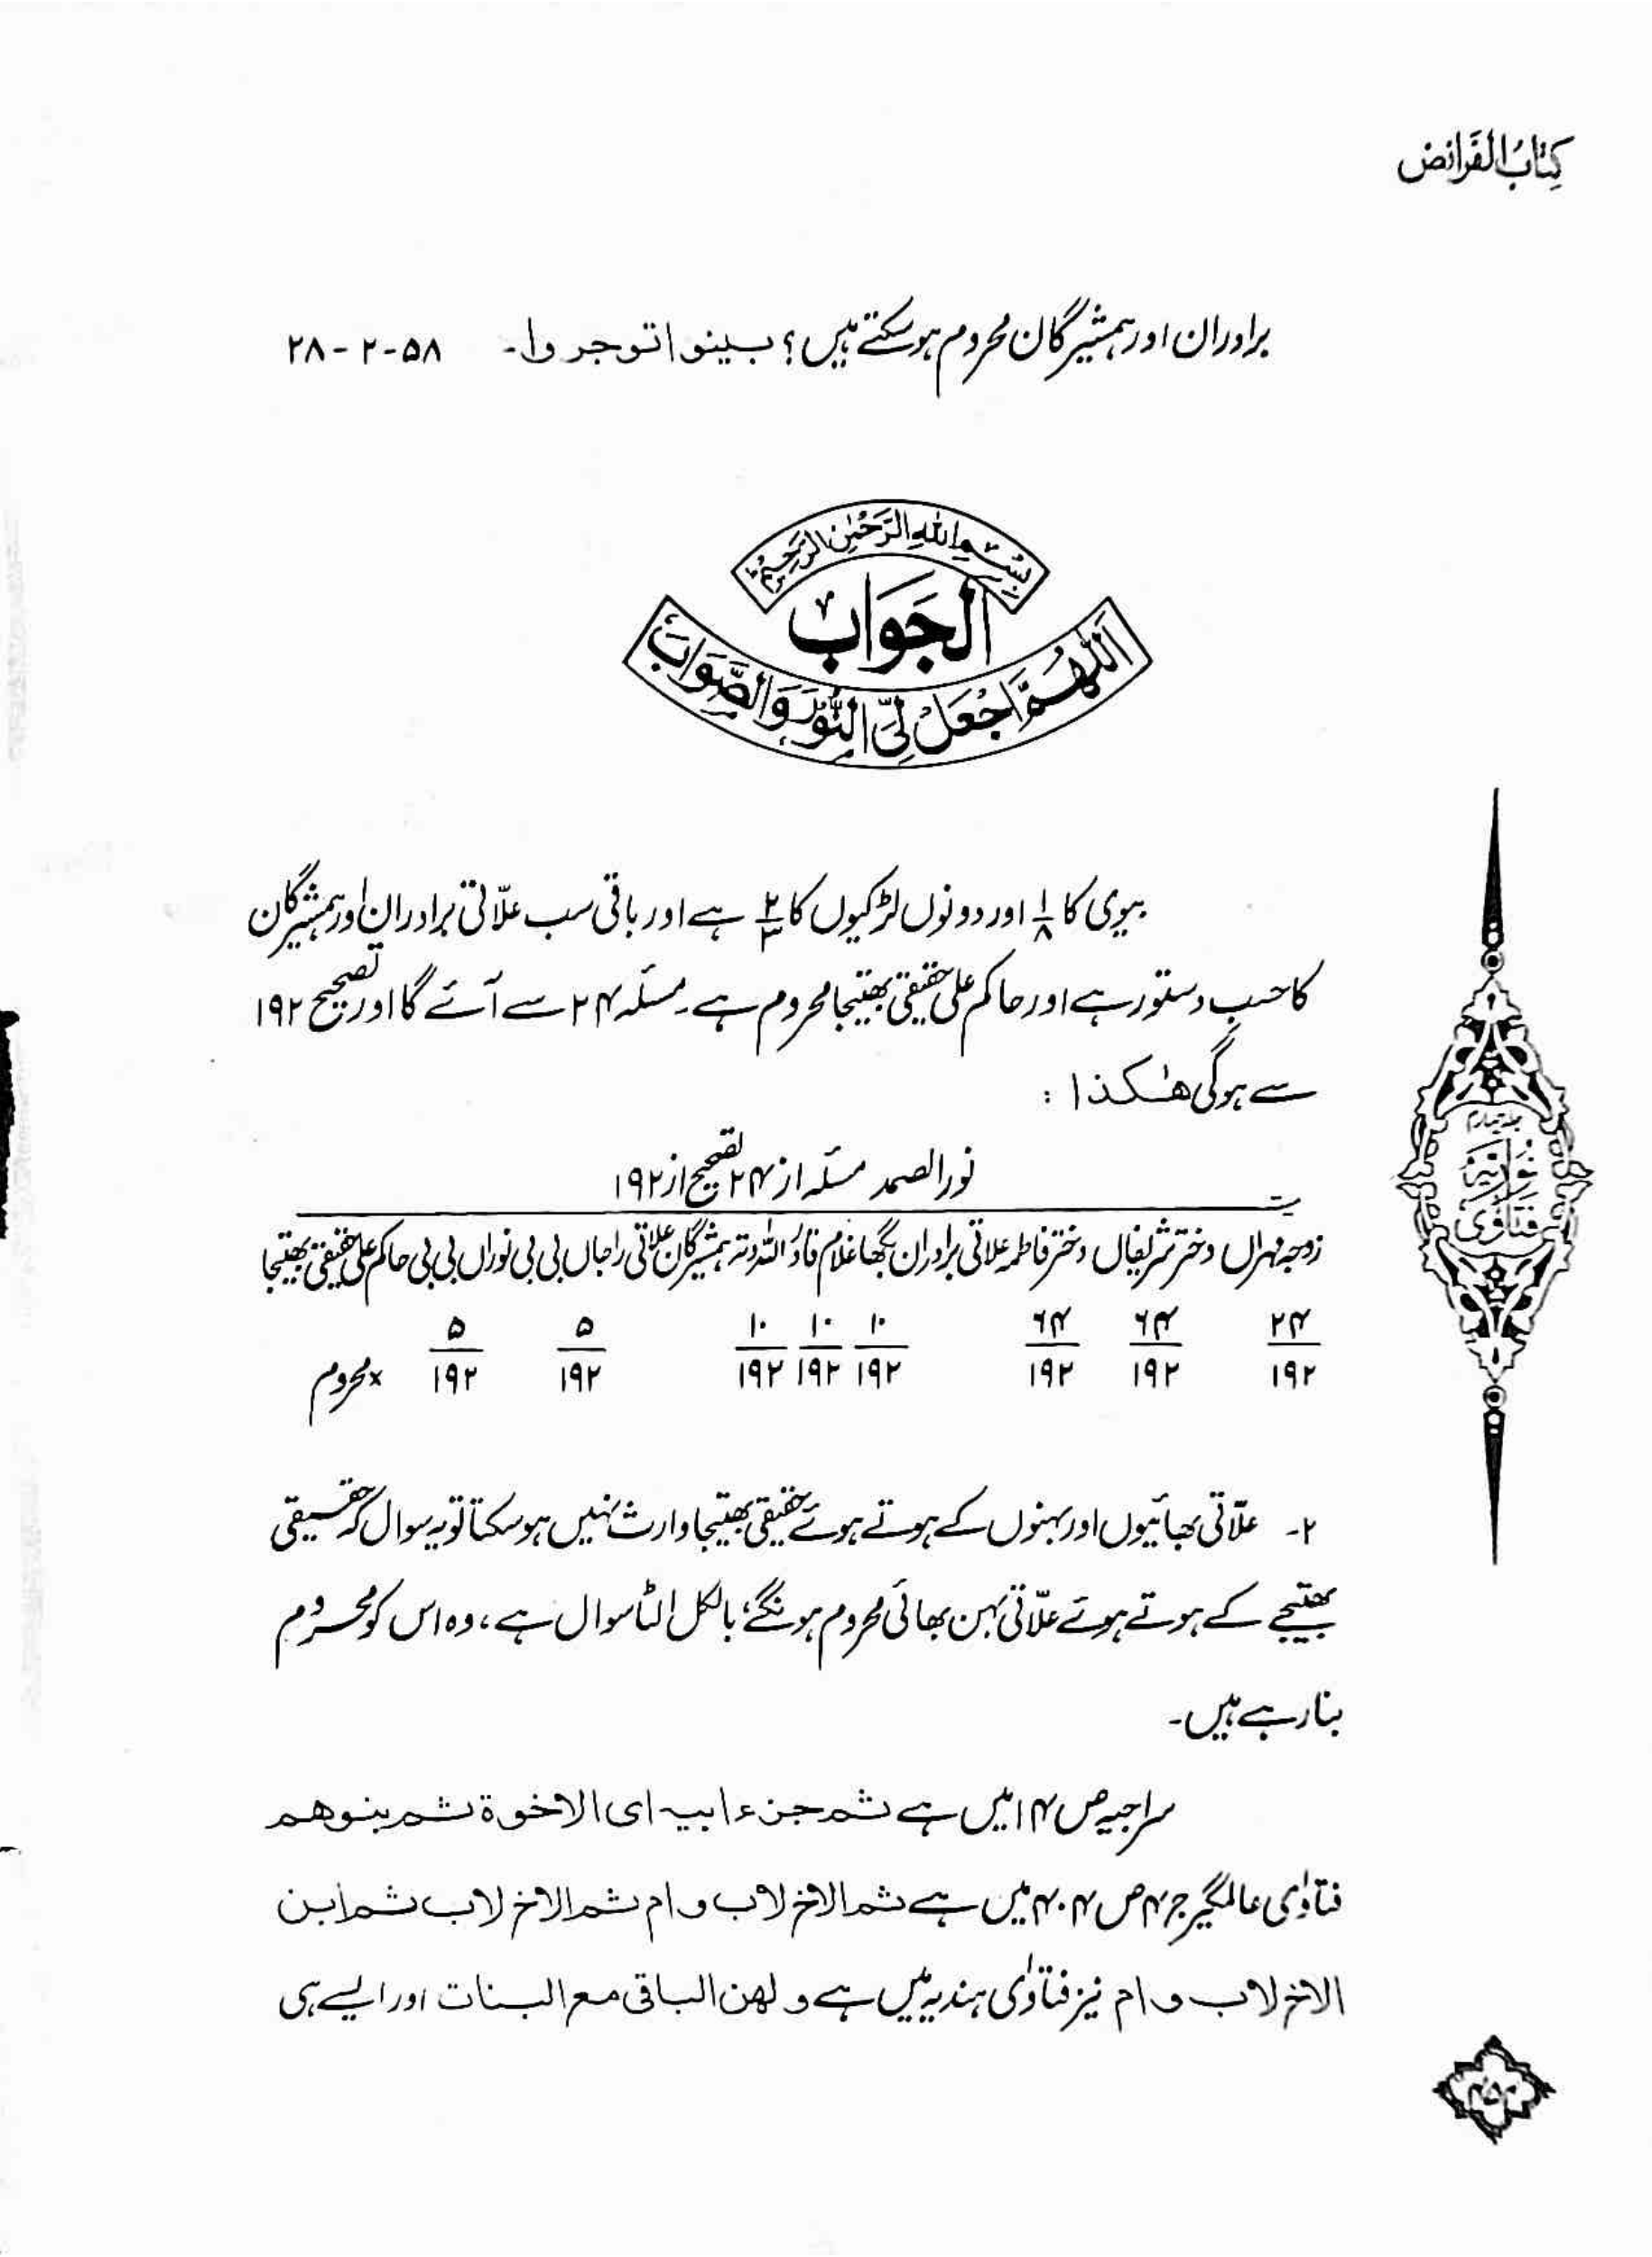 کِتَابُ الفَرائض
برادران اور ہمشیرگان محروم ہوسکتے ہیں؟ بینوا توجروا۔ ۵۸-۲-۲۸
بِسْمِ اللهِ الرَّحْمٰنِ الرَّحِيْمِ
الْجَوَابُ
اَللّٰهُمَّ اجْعَلْ لِيَ النُّوْرَ وَالصَّوَابَ
بیوی کا ۱/۸ اور دونوں لڑکیوں کا ۲/۳ ہے اور باقی سب علّاتی برادران اور ہمشیرگان
کا حسبِ دستور ہے اور حاکم علی حقیقی بھتیجا محروم ہے۔ مسئلہ ۲۴ سے آئے گا اور تصحیح ۱۹۲
سے ہوگی ھٰکذا :
نور الصمد مسئلہ از ۲۴ تصحیح از ۱۹۲
زوجہ مہراں دختر شریفاں دختر فاطمہ علاتی برادران بگھا غلام قادر اللہ دتہ ہمشیرگان علاتی راجاں بی بی نوراں بی بی حاکم علی حقیقی بھتیجا
۲۴/۱۹۲ ۶۴/۱۹۲ ۶۴/۱۹۲ ۱۰/۱۹۲ ۱۰/۱۹۲ ۱۰/۱۹۲ ۵/۱۹۲ ۵/۱۹۲ ×محروم
۲- علّاتی بھائیوں اور بہنوں کے ہوتے ہوئے حقیقی بھتیجا وارث نہیں ہوسکتا تو یہ سوال کہ حقیقی
بھتیجے کے ہوتے ہوئے علّاتی بہن بھائی محروم ہونگے؛ بالکل الٹا سوال ہے، وہ اس کو محروم
بنا رہے ہیں۔
سراجیہ ص ۱۴ میں ہے ثم جزء ابیہ ای الاخوۃ ثم بنوھم
فتاوٰی عالمگیر ج ۴ ص ۴۰۴ میں ہے ثم الاخ لاب و ام ثم الاخ لاب ثم ابن
الاخ لاب و ام نیز فتاوٰی ہندیہ میں ہے و لھن الباقی مع البنات اور ایسے ہی
جلد چہارم
فتاوٰی
نوریہ